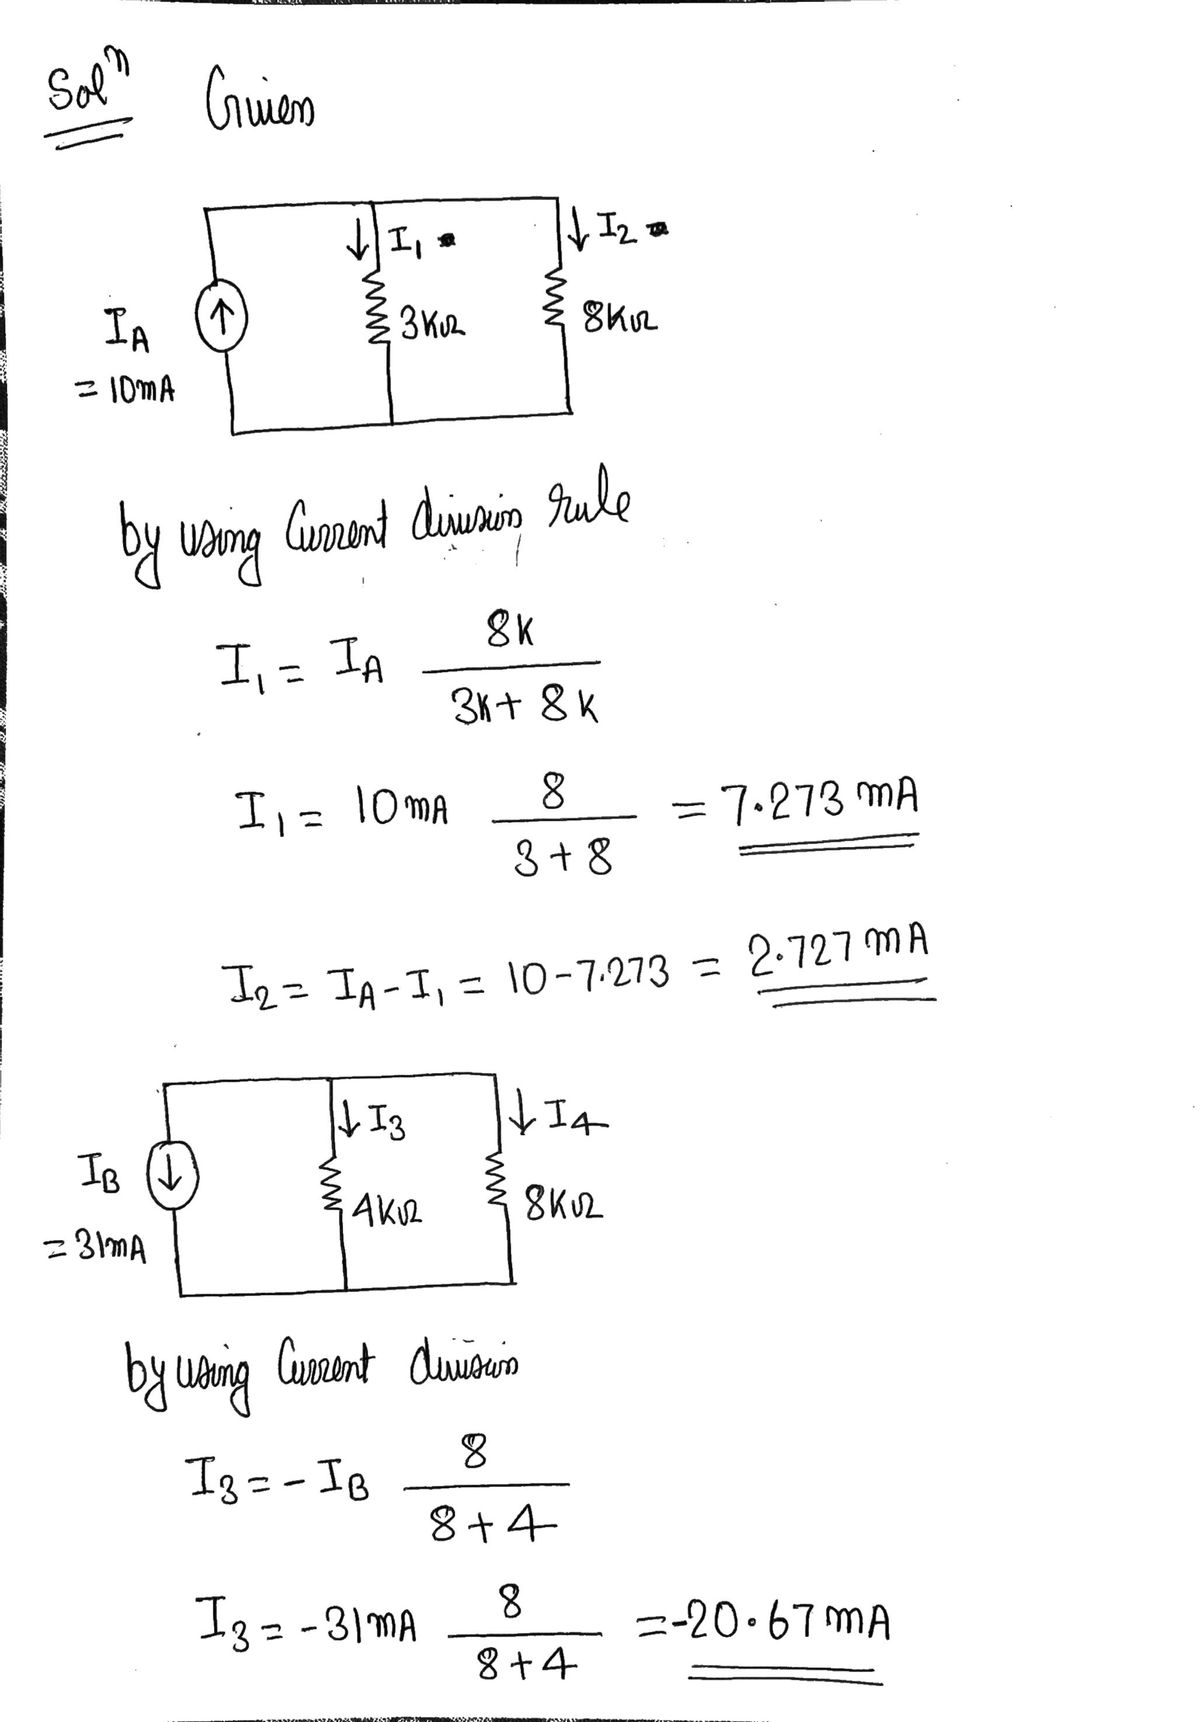 Solⁿ Given
↓ I₁ ↓ I₂
I_A ↑ 3KΩ 8KΩ
= 10mA
by using Current division rule
I₁ = I_A 8K / (3K + 8K)
I₁ = 10mA 8 / (3 + 8) = 7.273 mA
I₂ = I_A - I₁ = 10 - 7.273 = 2.727 mA
↓ I₃ ↓ I₄
I_B ↓ 4KΩ 8KΩ
= 31mA
by using Current division
I₃ = - I_B 8 / (8 + 4)
I₃ = -31mA 8 / (8 + 4) = -20.67 mA